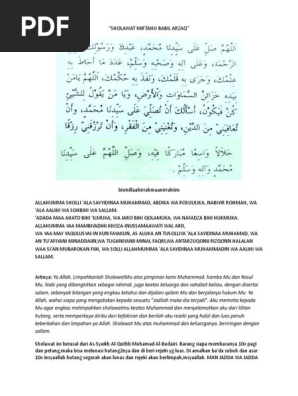 PDF
"SHOLAWAT MIFTAHU BABIL ARZAQ"
اَللّٰهُمَّ صَلِّ عَلَى سَيِّدِنَا مُحَمَّدٍ، عَبْدِكَ وَرَسُوْلِكَ
الرَّحْمَةِ، وَعَلَى آلِهِ وَصَحْبِهِ وَسَلِّمْ، عَدَدَ مَا أَحَاطَ بِهِ
عِلْمُكَ، وَجَرَى بِهِ قَلَمُكَ، وَنَفَذَ بِهِ حُكْمُكَ، اَللّٰهُمَّ يَا مَنْ
بِيَدِهِ خَزَائِنُ السَّمَاوَاتِ وَالْأَرْضِ، وَيَا مَنْ يَقُوْلُ لِلشَّيْئِ
كُنْ فَيَكُوْنُ، أَسْأَلُكَ أَنْ تُصَلِّيَ عَلَى سَيِّدِنَا مُحَمَّدٍ، وَأَنْ
تُعَافِيَنِيْ مِنَ الدَّيْنِ، وَتُغْنِيَنِيْ مِنَ الْفَقْرِ، وَأَنْ تَرْزُقَنِيْ رِزْقًا
حَلَالًا وَاسِعًا مُبَارَكًا فِيْهِ، وَصَلِّ اللّٰهُمَّ عَلَى سَيِّدِنَا
مُحَمَّدٍ وَآلِهِ وَسَلِّمْ.
bismillaahirrohmaanirrohiim
ALLAHUMMA SHOLLI 'ALA SAYYIDINAA MUHAMMAD, ABDIKA WA ROSUULIKA, NABIYIR ROHMAH, WA
'ALA AALIHI WA SOHBIHI WA SALLAM.
'ADADA MAA AHATO BIHI 'ILMUKA, WA JARO BIHI QOLAMUKA, WA NAFADZA BIHI HUKMUKA.
ALLAHUMMA YAA MAMBIYADIHI KHOZA-INUSSAMAAWATI VAL ARD,
WA YAA MAY YAQULUSYAI-IN KUN FAYAKUN, AS ALUKA AN TUSOLLIYA 'ALA SAYYIDINAA MUHAMMAD, WA
AN TU'AFIYANI MINADDAIIN,WA TUGHNIYANII MINAL FAQRI,WA ANTARZUQONII RIZQONN HALALAN
WAA S'IAN MUBAROKAN FIIH, WA SOLLI ALLAHUMMA 'ALA SAYIDINAA MUHAMMADIN WA AALIHI WA
SALLAM.
Artinya: Ya Allah, Limpahkanlah SholawatMu atas pimpinan kami Muhammad, hamba Mu dan Rasul
Mu, Nabi yang dibangkitkan sebagai rahmat, juga keatas keluarga dan sahabat beliau. dengan disertai
salam. sebanyak bilangan yang engkau ketahui dan dijalan qalam Mu dan berjalannya hukum Mu. Ya
Allah. wahai siapa yang mengatakan kepada sesuatu "jadilah maka dia terjadi". Aku meminta kepada
Mu agar engkau melimpahkan sholawatmu keatas Muhammad dan menyelamatkan aku dari lilitan
hutang, serta memperkaya diriku dari kefakiran dan berilah aku rezeki yang halal dan luas penuh
keberkahan dan limpahan ya Allah. Sholawat Mu atas muhammad dan keluarganya, beriringan dengan
sallam.
Sholawat ini berasal dari As-Syaikh Al-Qutbih Muhamad Al-Badani. Barang siapa membacanya 10x pagi
dan petang,maka bisa melunasi hutang2nya dan di beri rejeki yg luas. Di amalkan ba'da subuh dan asar
10x insyaallah hutang segerah akan lunas dan rejeki akan berlimpah,insyaallah. MAN JADDA WA JADDA